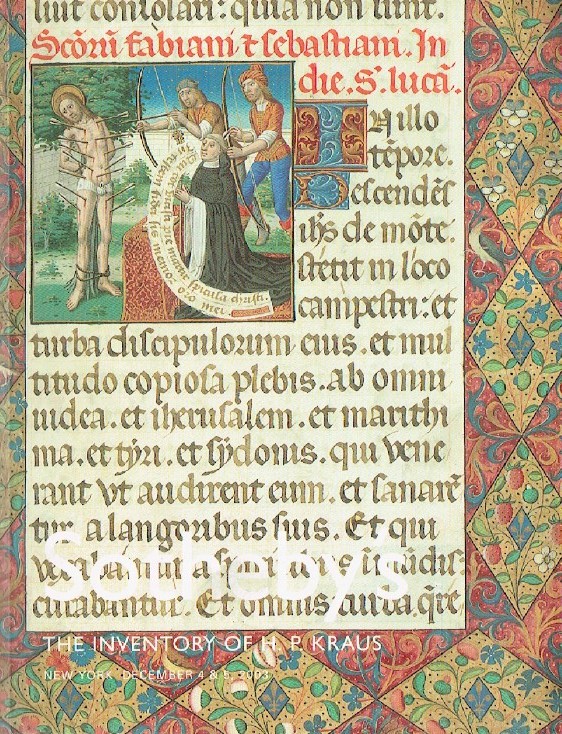 liut consolari: quia non sunt.
Scōrū fabiani ⁊ sebastiani. In
die. S. lucā.
In illo
tēpore.
Descendēs
ihs de mōte.
stetit in loco
campestri: et
turba discipulorum eius. et mul
titudo copiosa plebis. ab omni
iudea. et iherusalem. et marithi
ma. et tyri. et sydonis. qui vene
rant vt audirent eum. et sanarē
tur a langoribus suis. Et qui
vexabantur a
curabantur. Et omnis turba. q̄re
Sotheby's
THE INVENTORY OF H. P. KRAUS
NEW YORK DECEMBER 4 & 5, 2003